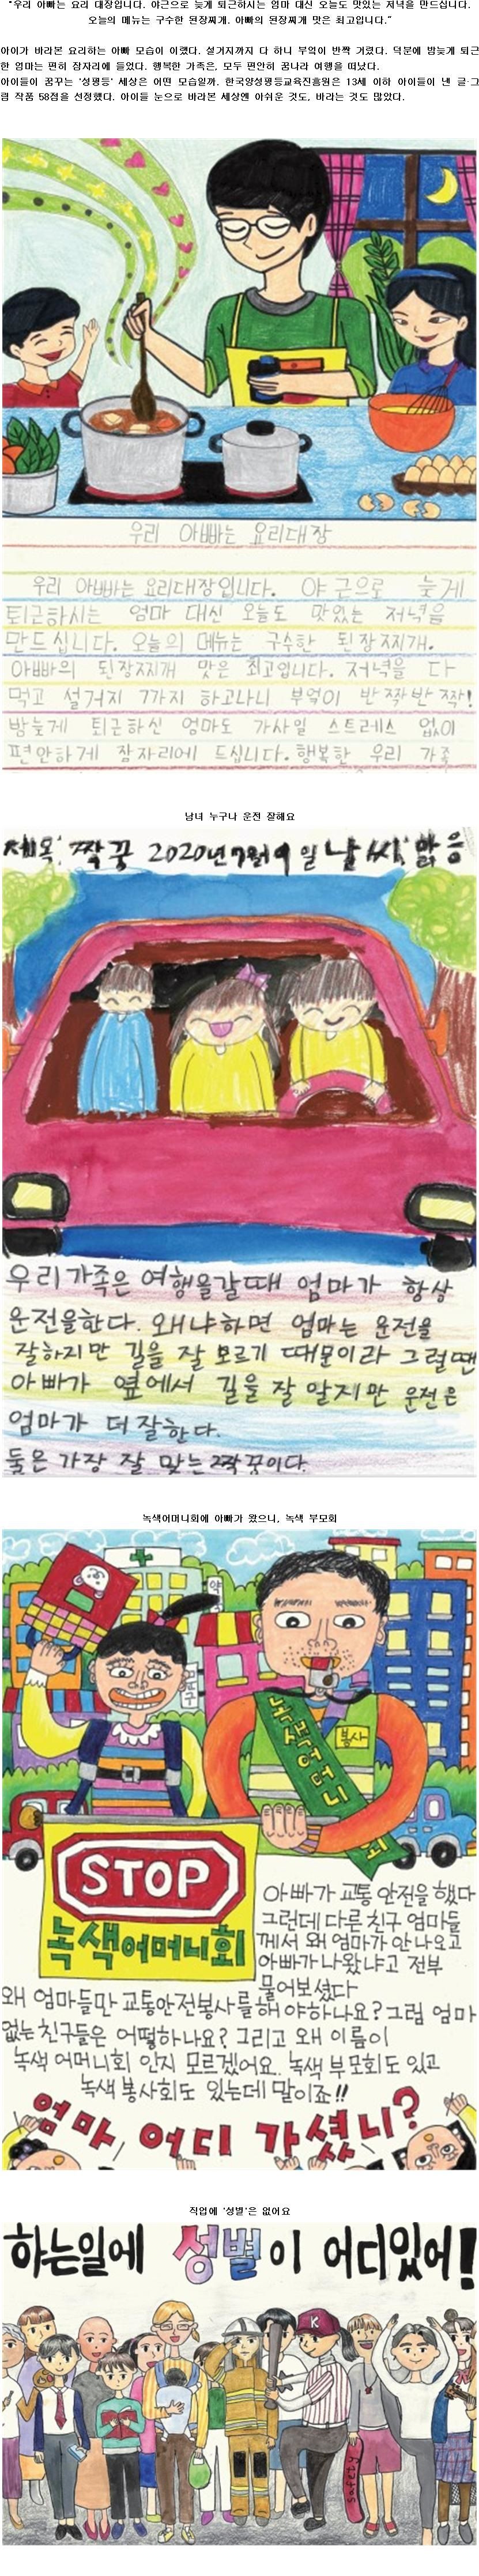 "우리 아빠는 요리 대장입니다. 야근으로 늦게 퇴근하시는 엄마 대신 오늘도 맛있는 저녁을 만드십니다.
오늘의 메뉴는 구수한 된장찌개. 아빠의 된장찌개 맛은 최고입니다."
아이가 바라본 요리하는 아빠 모습이 이랬다. 설거지까지 다 하니 부엌이 반짝 거렸다. 덕분에 밤늦게 퇴근
한 엄마는 편히 잠자리에 들었다. 행복한 가족은, 모두 편안히 꿈나라 여행을 떠났다.
아이들이 꿈꾸는 '성평등' 세상은 어떤 모습일까. 한국양성평등교육진흥원은 13세 이하 아이들이 낸 글·그
림 작품 58점을 선정했다. 아이들 눈으로 바라본 세상엔 아쉬운 것도, 바라는 것도 많았다.
우리 아빠는 요리대장
우리 아빠는 요리대장입니다. 야근으로 늦게
퇴근하시는 엄마 대신 오늘도 맛있는 저녁을
만드십니다. 오늘의 메뉴는 구수한 된장찌개.
아빠의 된장찌개 맛은 최고입니다. 저녁을 다
먹고 설거지 까지 하고나니 부엌이 반짝반짝!
밤늦게 퇴근하신 엄마도 가사일 스트레스 없이
편안하게 잠자리에 드십니다. 행복한 우리 가족
남녀 누구나 운전 잘해요
제목: 짝꿍 2020년 7월 9일 날씨 맑음
우리가족은 여행을갈때 엄마가 항상
운전을한다. 왜냐하면 엄마는 운전을
잘하지만 길을 잘 모르기 때문이라 그럴땐
아빠가 옆에서 길을 잘 알지만 운전은
엄마가 더 잘한다.
둘은 가장 잘 맞는 짝꿍이다.
녹색어머니회에 아빠가 왔으니, 녹색 부모회
약국
봉사
녹색어머니회
STOP
녹색어머니회
아빠가 교통 안전을 했다
그런데 다른 친구 엄마들
께서 왜 엄마가 안나오고
아빠가 나왔냐고 전부
물어보셨다
왜 엄마들만 교통안전봉사를 해야하나요? 그럼 엄마
없는 친구들은 어떻하나요? 그리고 왜 이름이
녹색 어머니회 인지 모르겠어요. 녹색 부모회도 있고
녹색 봉사회도 있는데 말이죠!!
엄마 어디 가셨니?
직업에 '성별'은 없어요
하는일에 성별이 어디있어!
K